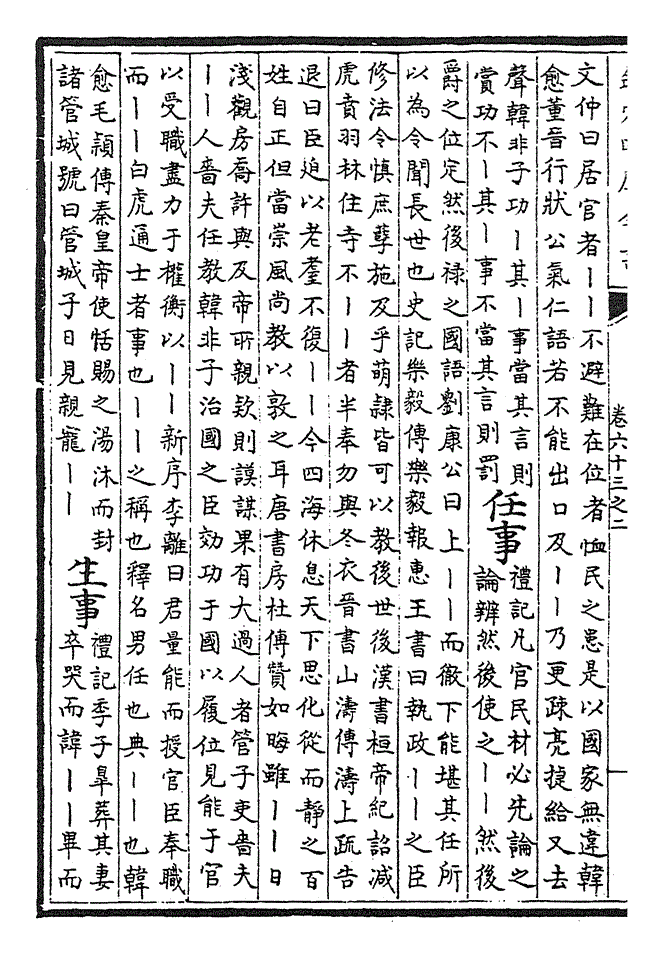 卷六十三之二
一
文仲曰居官者丨丨不避難在位者恤民之患是以國家無違韓
愈董晉行狀公氣仁語若不能出口及丨丨乃更疎亮捷給又去
聲韓非子功丨其丨事當其言則
賞功不丨其丨事不當其言則罰
任事
禮記凡官民材必先論之
論辨然後使之丨丨然後
爵之位定然後禄之國語劉康公曰上丨丨而徹下能堪其任所
以為令聞長世也史記樂毅傳樂毅報惠王書曰執政丨丨之臣
修法令慎庶孽施及乎萌隷皆可以教後世後漢書桓帝紀詔减
虎賁羽林住寺不丨丨者半奉勿與冬衣晉書山濤傳濤上疏告
退曰臣迫以老耋不復丨丨今四海休息天下思化從而靜之百
姓自正但當崇風尚教以敦之耳唐書房杜傳贊如晦雖丨丨日
淺觀房喬許與及帝所親欵則謨謀果有大過人者管子吏嗇夫
丨丨人嗇夫任教韓非子治國之臣効功于國以履位見能于官
以受職盡力于權衡以丨丨新序李離曰君量能而授官臣奉職
而丨丨白虎通士者事也丨丨之稱也釋名男任也典丨丨也韓
愈毛頴傳秦皇帝使恬賜之湯沐而封
諸管城號曰管城子日見親寵丨丨
生事
禮記季子臯葬其妻
卒哭而諱丨丨畢而